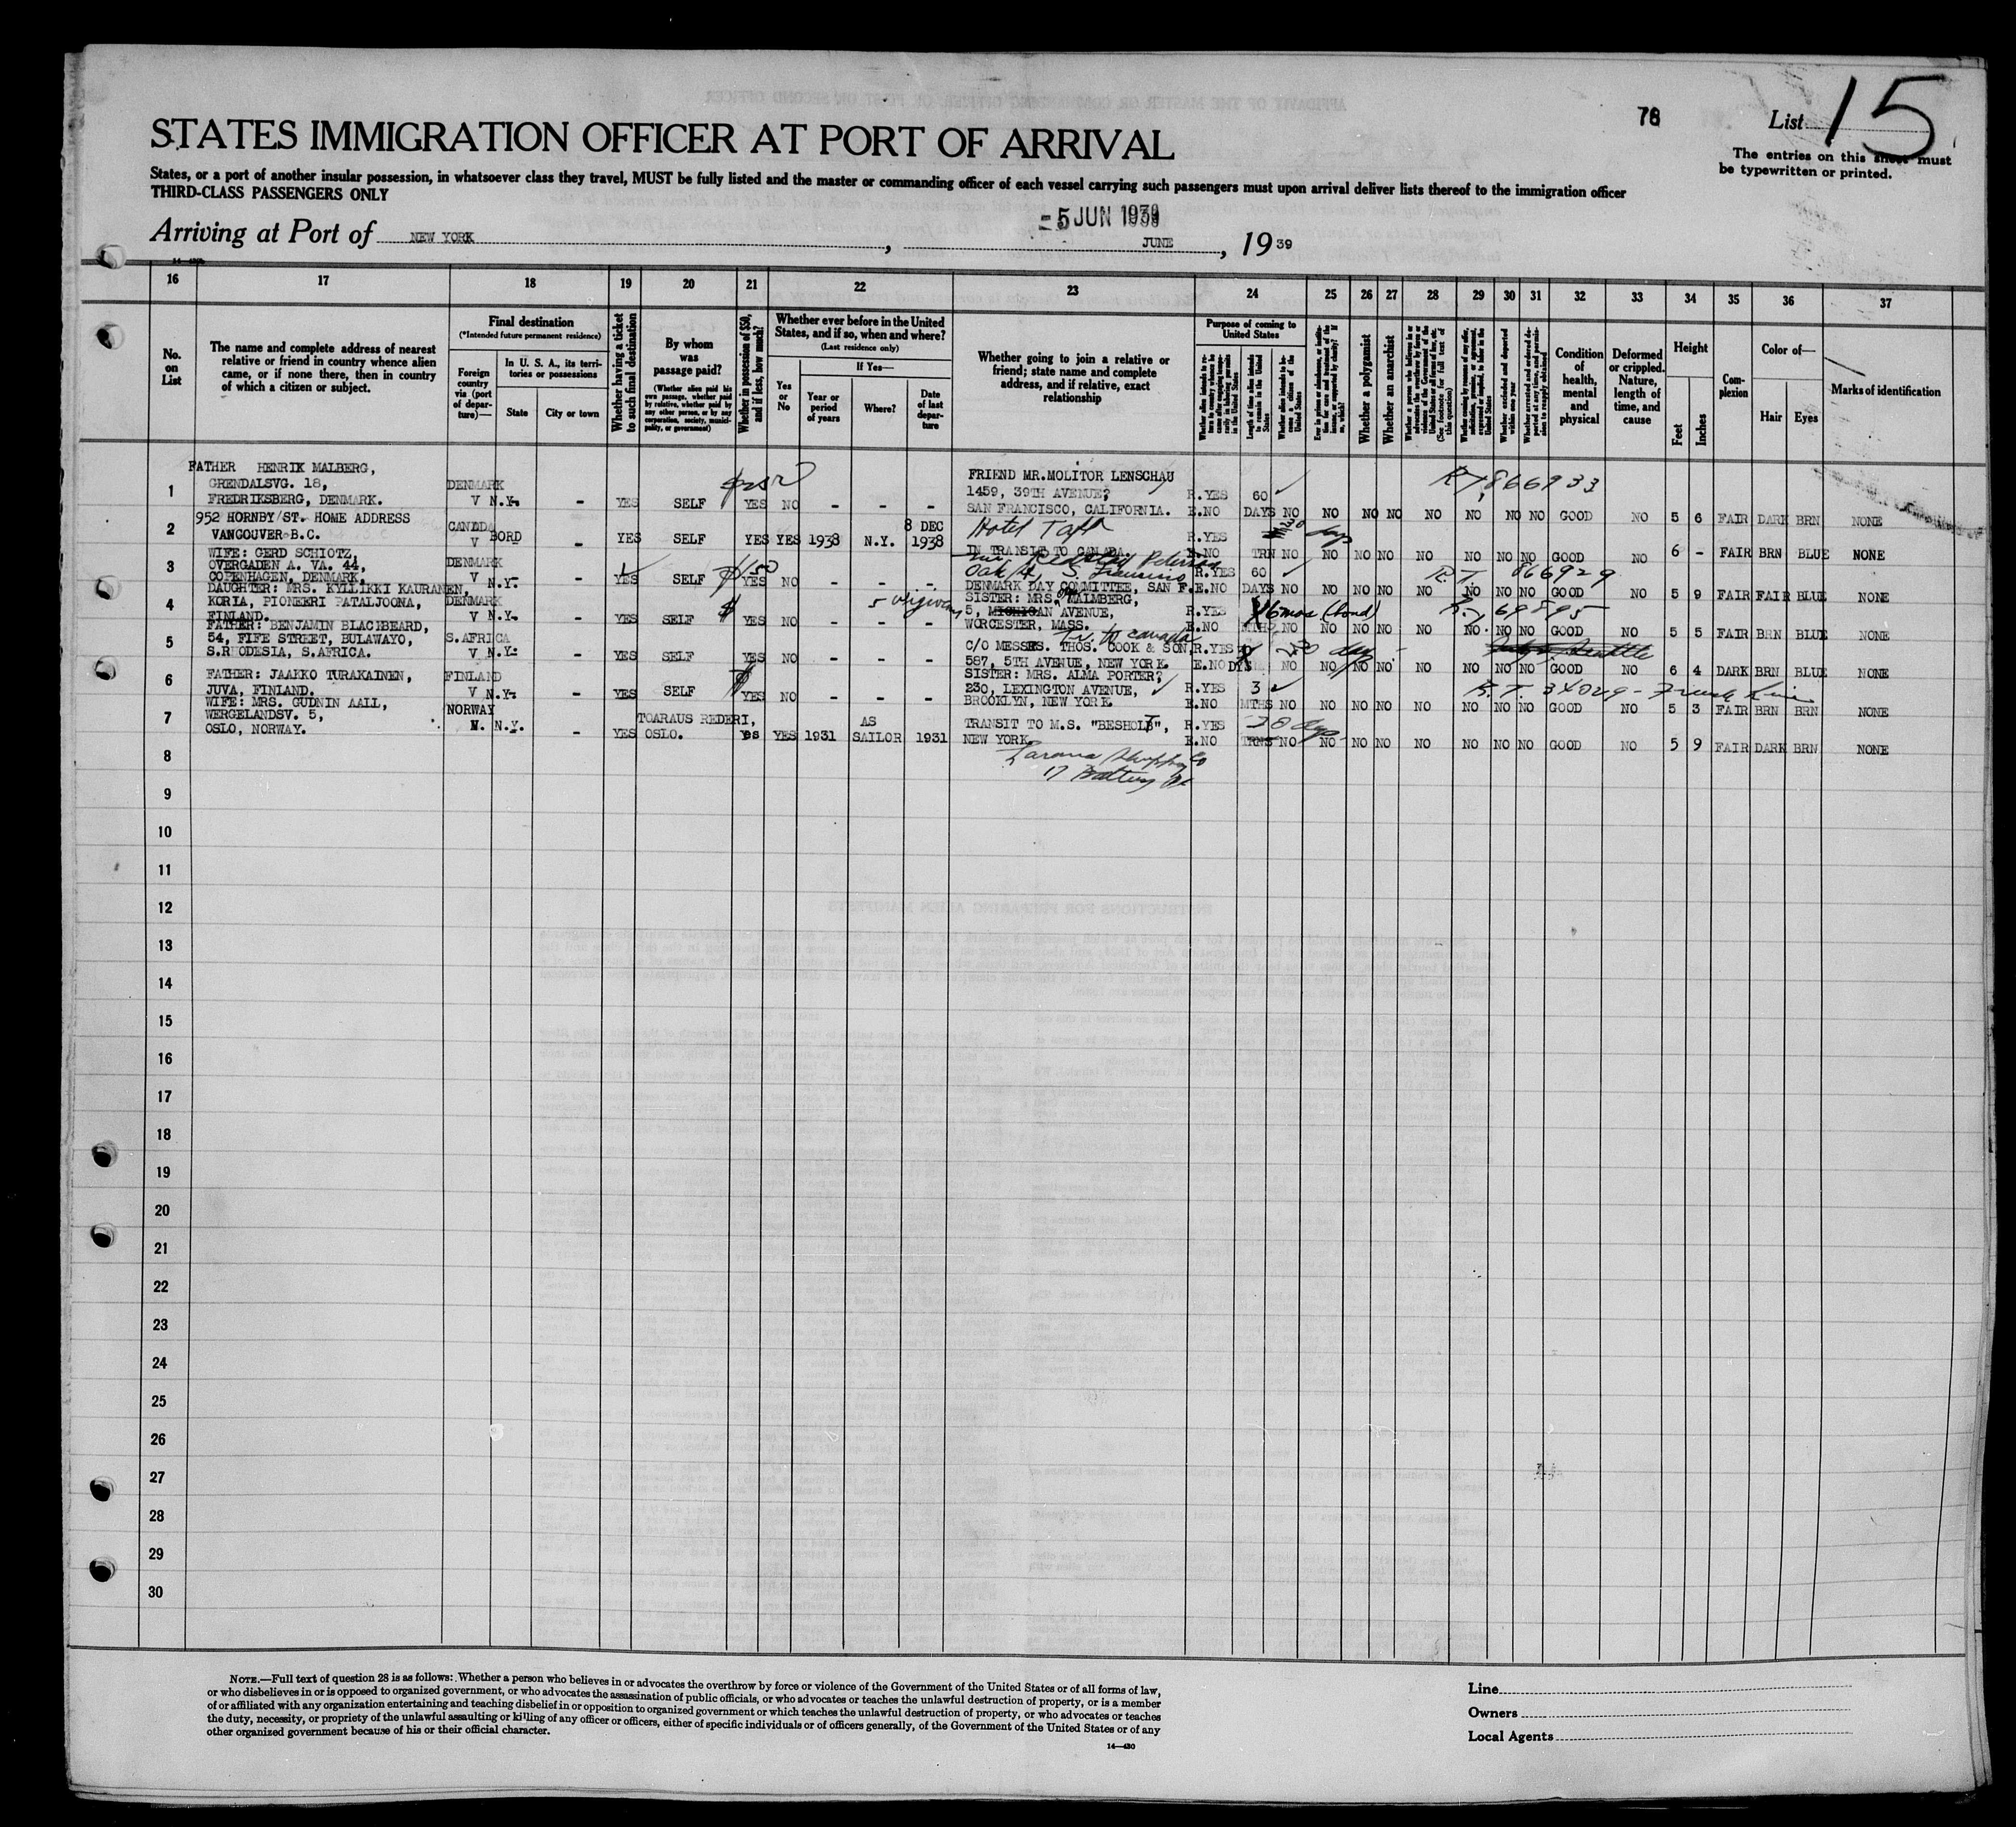 76
List 15
STATES IMMIGRATION OFFICER AT PORT OF ARRIVAL
The entries on this sheet must
be typewritten or printed.
States, or a port of another insular possession, in whatsoever class they travel, MUST be fully listed and the master or commanding officer of each vessel carrying such passengers must upon arrival deliver lists thereof to the immigration officer
THIRD-CLASS PASSENGERS ONLY
- 5 JUN 1939
Arriving at Port of NEW YORK, JUNE, 19 39
16 17 18 19 20 21 22 23 24 25 26 27 28 29 30 31 32 33 34 35 36 37
No. on List
The name and complete address of nearest relative or friend in country whence alien came, or if none there, then in country of which a citizen or subject.
Final destination
(*Intended future permanent residence)
Foreign country via (port of departure)—
In U. S. A., its territories or possessions
State
City or town
Whether having a ticket to such final destination
By whom was passage paid?
(Whether alien paid his own passage, whether paid by relative, whether paid by any other person, or by any corporation, society, municipality, or government)
Whether in possession of $50, and if less, how much?
Whether ever before in the United States, and if so, when and where?
(Last residence only)
Yes or No
If Yes—
Year or period of years
Where?
Date of last departure
Whether going to join a relative or friend; state name and complete address, and if relative, exact relationship
Purpose of coming to United States
Length of time alien intends to remain in the United States
Whether alien intends to become a citizen of the United States
Whether a polygamist
Whether an anarchist
Condition of health, mental and physical
Deformed or crippled. Nature, length of time, and cause
Height
Feet
Inches
Complexion
Color of—
Hair
Eyes
Marks of identification
1 FATHER HENRIK MALBERG,
GRENDALSVG. 18,
FREDRIKSBERG, DENMARK. DENMARK V N.Y. - YES SELF YES NO - - - FRIEND MR.MOLITOR LENSCHAU
1459, 39TH AVENUE,
SAN FRANCISCO, CALIFORNIA. R.YES E.NO 60 DAYS NO NO NO NO NO NO NO NO GOOD NO 5 6 FAIR DARK BRN NONE
R.T. 866933
2 952 HORNBY/ST. HOME ADDRESS
VANCOUVER-B.C. CANADA V BORD - YES SELF YES YES 1938 N.Y. 8 DEC 1938 Hotel Taft
IN TRANSIT TO CANADA. R.YES E.NO 30 days TRN NO NO NO NO NO NO NO NO GOOD NO 6 - FAIR BRN BLUE NONE
3 WIFE: GERD SCHIOTZ,
OVERGADEN A. VA. 44,
COPENHAGEN, DENMARK. DENMARK V N.Y. - YES SELF $150 YES NO - - -
DENMARK DAY COMMITTEE, SAN F. R.YES E.NO 60 DAYS NO NO NO NO NO NO NO NO GOOD NO 5 9 FAIR FAIR BLUE NONE
R.T. 866929
4 DAUGHTER: MRS. KYLLIKKI KAURANEN,
KORIA, PIONEERI PATALJOONA,
FINLAND. DENMARK V N.Y. - YES SELF $ YES NO - - - SISTER: MRS. MALMBERG,
5, MICHIGAN AVENUE,
WORCESTER, MASS. R.YES E.NO 6 mos (bond) MTHS NO NO NO NO NO NO NO NO GOOD NO 5 5 FAIR BRN BLUE NONE
R.T. 69895
5 FATHER: BENJAMIN BLACHBEARD,
54, FIFE STREET, BULAWAYO,
S.RHODESIA, S.AFRICA. S.AFRICA V N.Y. - YES SELF YES NO - - - Tr. to Canada
C/O MESSRS. THOS. COOK & SON,
587, 5TH AVENUE, NEW YORK. R.YES E.NO DYS NO NO NO NO NO NO NO NO GOOD NO 6 4 DARK BRN BLUE NONE
6 FATHER: JAAKKO TURAKAINEN,
JUVA, FINLAND. FINLAND V N.Y. - YES SELF $ YES NO - - - SISTER: MRS. ALMA PORTER,
230, LEXINGTON AVENUE,
BROOKLYN, NEW YORK. R.YES E.NO 3 MTHS NO NO NO NO NO NO NO NO GOOD NO 5 3 FAIR BRN BRN NONE
R.T. 34029 - French Line
7 WIFE: MRS. GUDNIN AALL,
WERGELANDSV. 5,
OSLO, NORWAY. NORWAY N. N.Y. - YES TOARAUS REDERI, OSLO. Yes YES 1931 AS SAILOR 1931 TRANSIT TO M.S. "BESHOLT",
NEW YORK. R.YES E.NO TRNS NO NO NO NO NO NO NO NO GOOD NO 5 9 FAIR DARK BRN NONE
17 Battery Pl
8
9
10
11
12
13
14
15
16
17
18
19
20
21
22
23
24
25
26
27
28
29
30
NOTE.—Full text of question 28 is as follows: Whether a person who believes in or advocates the overthrow by force or violence of the Government of the United States or of all forms of law,
or who disbelieves in or is opposed to organized government, or who advocates the assassination of public officials, or who advocates or teaches the unlawful destruction of property, or is a member
of or affiliated with any organization entertaining and teaching disbelief in or opposition to organized government or which teaches the unlawful destruction of property, or who advocates or teaches
the duty, necessity, or propriety of the unlawful assaulting or killing of any officer or officers, either of specific individuals or of officers generally, of the Government of the United States or of any
other organized government because of his or their official character.
14—430
Line
Owners
Local Agents